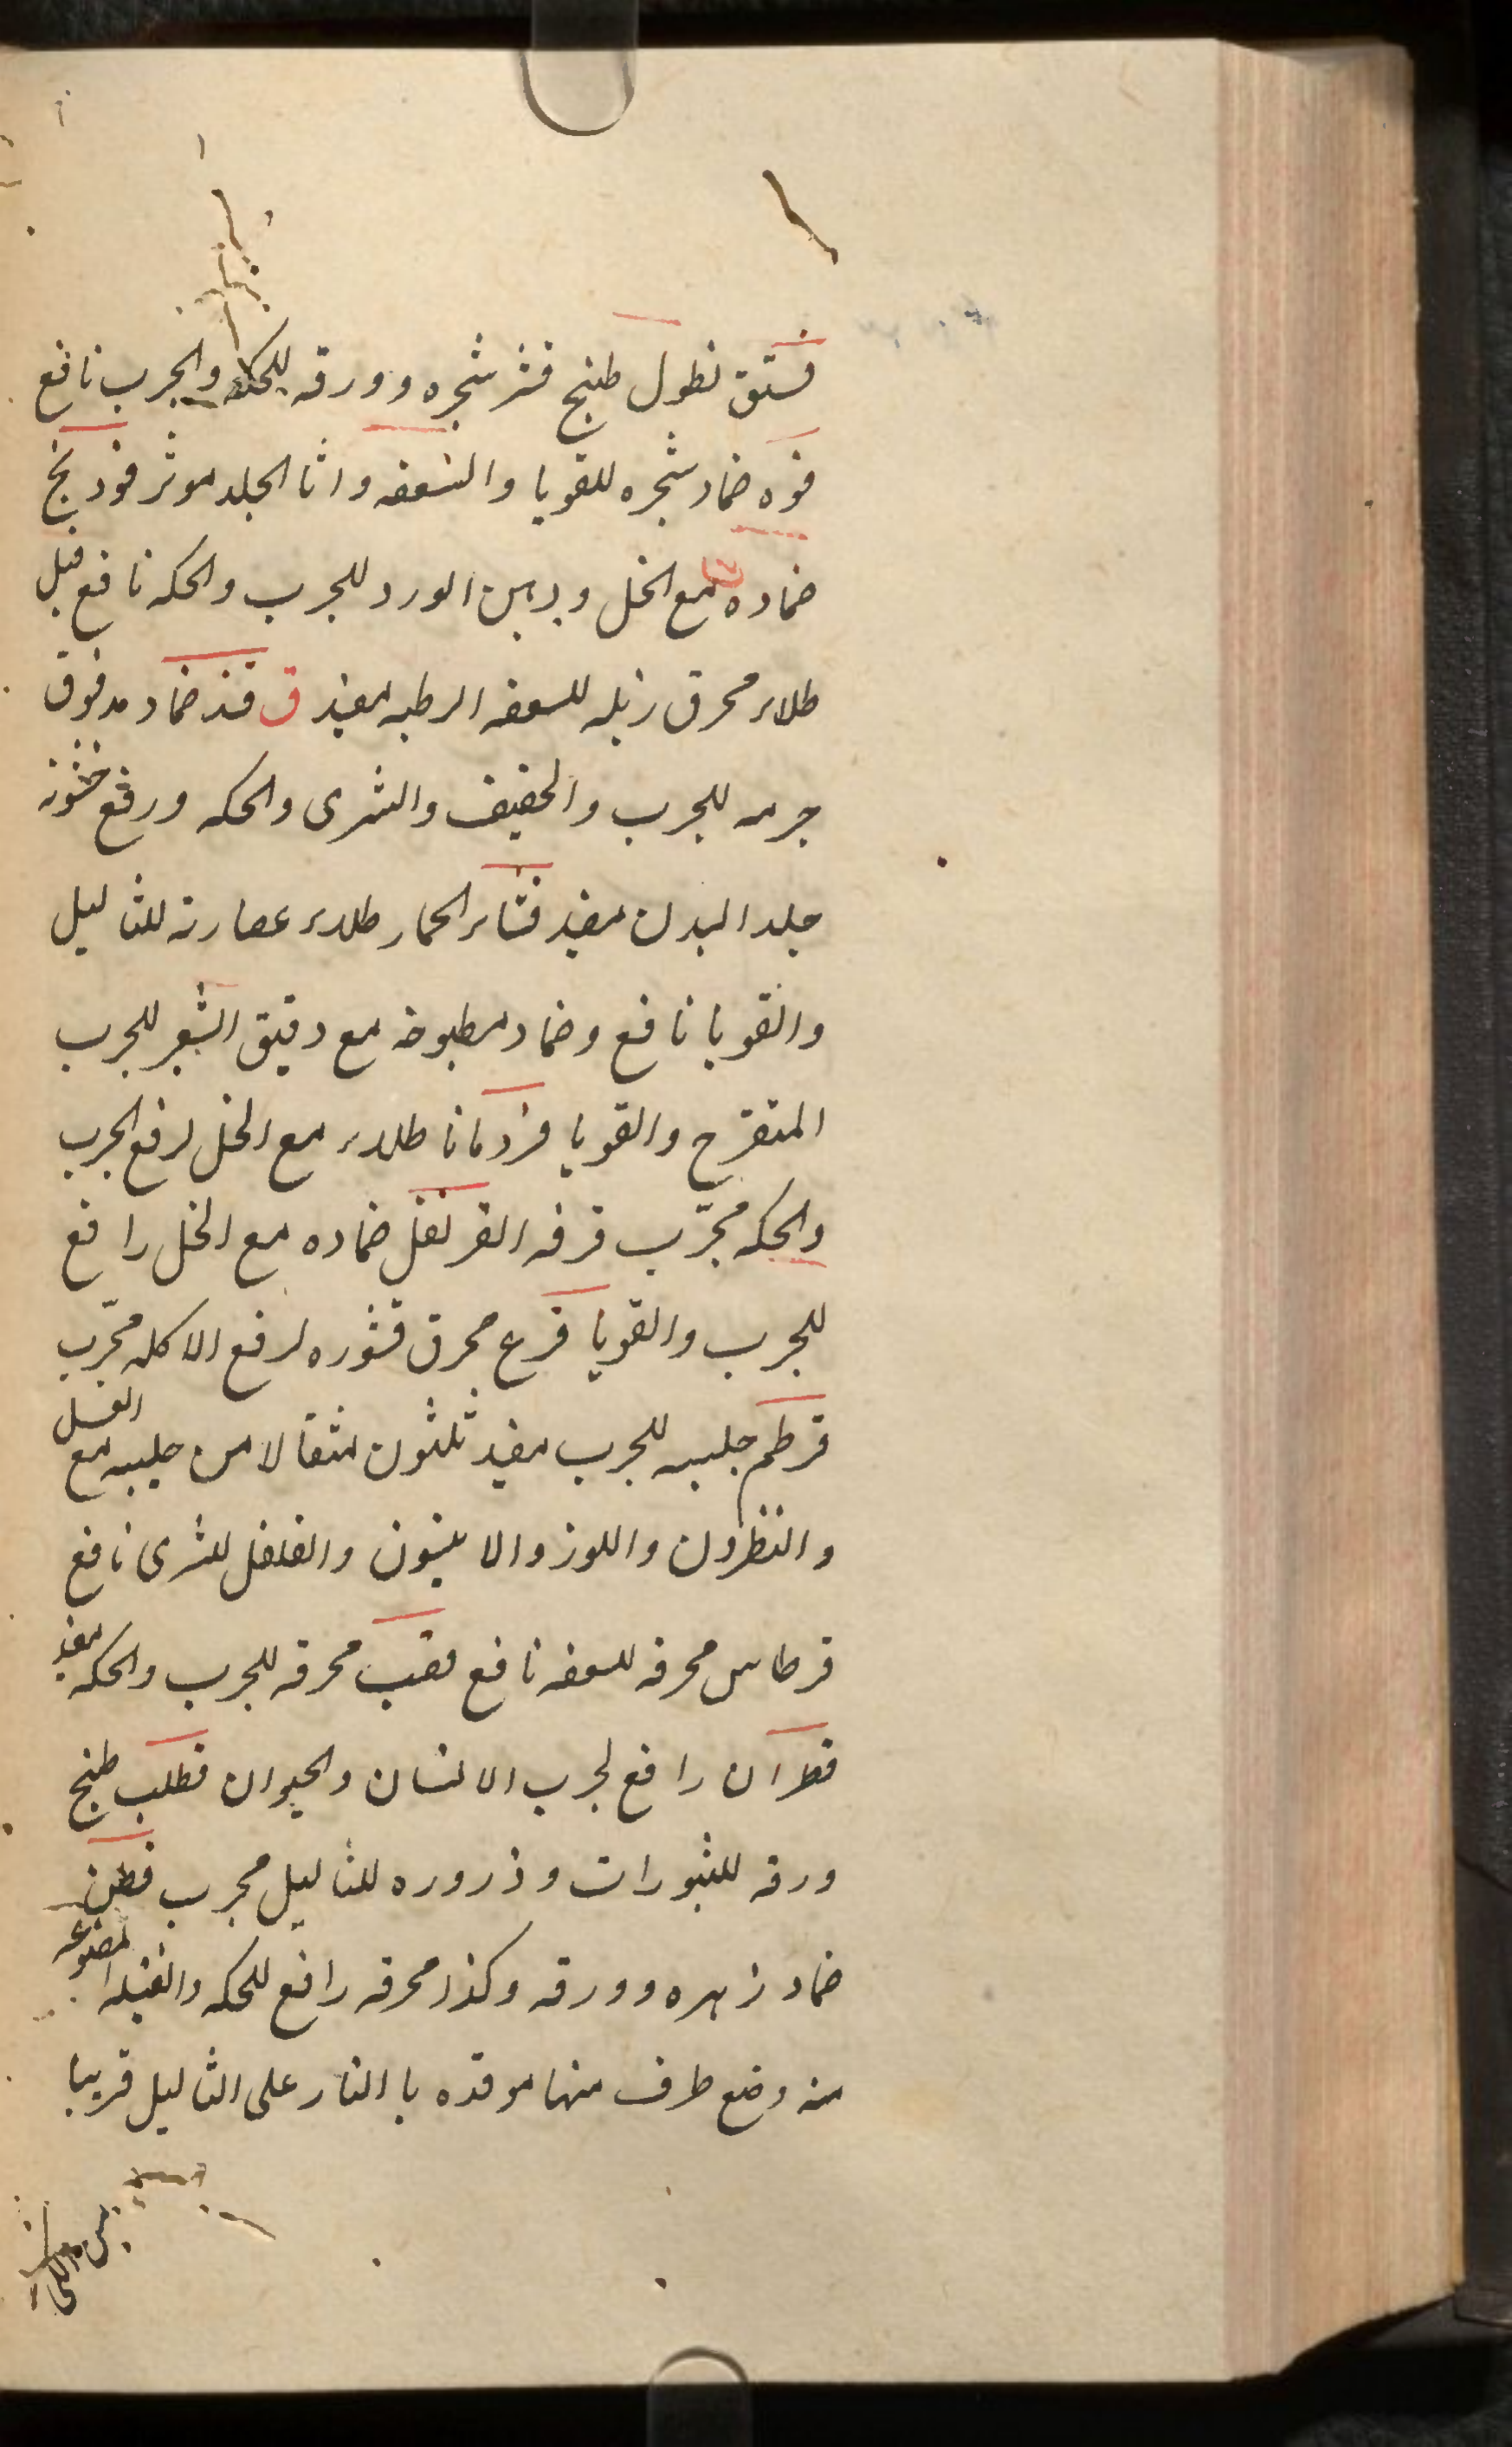 فستق نطول طبخ قشر شجره وورقه للحكه والجرب نافع
فوه ضماد شجره للقوبا والسعفه واثا الجلد موثر فودنج
ضماده مع الخل ودهن الورد للجرب والحكه نافع فيل
طلاء محرق زبله للسعفه الرطبه مفيد ق قند ضماد مدقوق
جرمه للجرب والخفيف والشرى والحكه ورفع خشونة
جلد البدن مفيد قثاء الحمار طلاء عصارته للثاليل
والقوبا نافع وضماد مطبوخه مع دقيق الشعير للجرب
المتقرح والقوبا قردمانا طلاء مع الخل لرفع الجرب
والحكه مجرّب قرفه القرنفل ضماده مع الخل رافع
للجرب والقوبا قرع محرق قشوره لرفع الاكله مجرّب
قرطم حليبه للجرب مفيد ثلثون مثقالا من حليبه مع العسل
والنطرون واللوز والانيسون والفلفل للشرى نافع
قرطاس محرقه للسعفه نافع قصب محرقه للجرب والحكه مفيد
قطران رافع لجرب الانسان والحيوان قطلب طبخ
ورقه للبثورات وذروره للثاليل مجرب قطن
ضماد زهره وورقه وكذا محرقه رافع للحكه والفتيله المصنوعه
منه وضع طرف منها موقده با النار على الثاليل قريبا